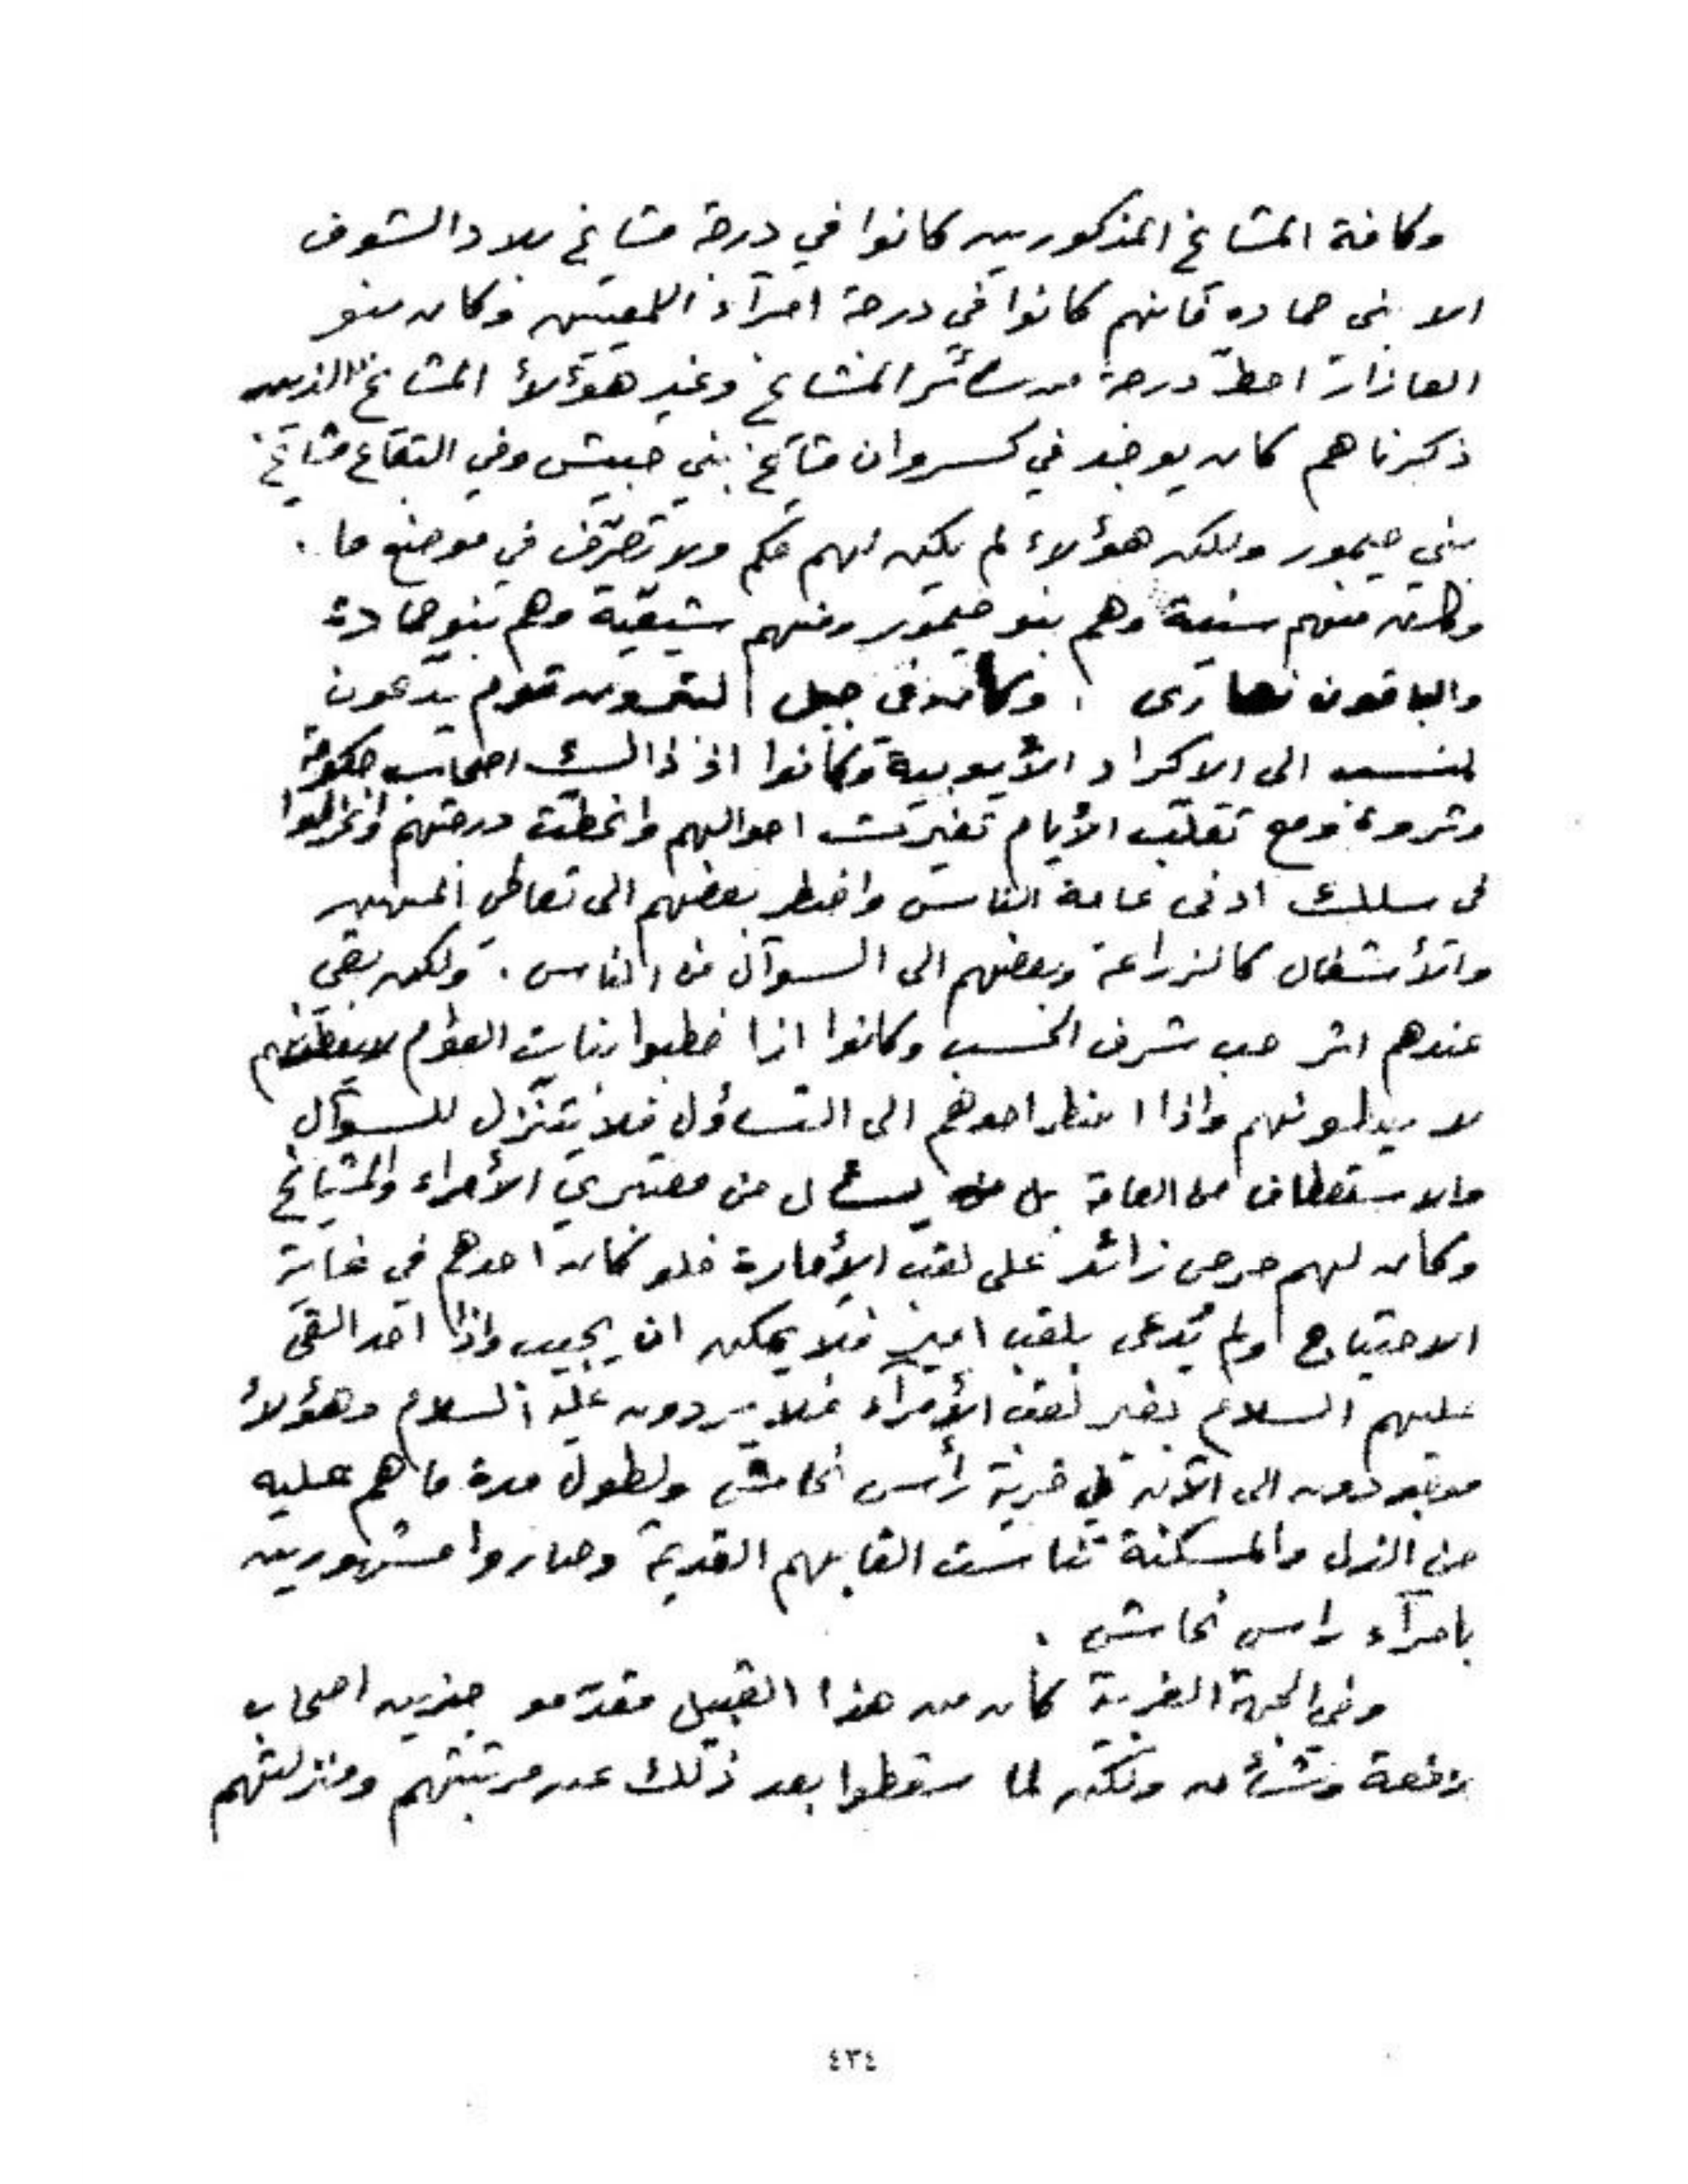 وكافة المشايخ المذكورين كانوا في درجة مشايخ بلاد الشوف
الا بنى حماده فانهم كانوا في درجة امرآء اللمعيين وكان بنو
العازار احطّ درجة من سائر المشايخ وغير هؤلاء المشايخ الذين
ذكرناهم كان يوجد في كسروان مشايخ بني حبيش وفي البقاع مشايخ
بني حيمور ولكن هؤلاء لم يكن لهم حكم ولا تصرّف في موضع ما.
وكان منهم سنية وهم بنو حيمور ومنهم شيعية وهم بنو حمادة
والباقون نصارى . وكان في جبل قوم يدّعون
الى الاكراد الأيوبية وكانوا اذ ذالك اصحاب حكومة
وثروة ومع تقلّب الأيام تغيّرت احوالهم وانحطّت درجتهم وانخرطوا
فى سلك ادنى عامة الناس واضطر بعضهم الى تعاطى المهن
والأشغال كالزراعة وبعضهم الى السوآل من الناس . ولكن بقي
عندهم اثر حب شرف الحسب وكانوا اذا خطبوا بنات العوام لا يعطونهم
لا يبدلونهم واذا اضطر احدهم الى التساؤل فلا يتنزّل للسوآل
والاستعطاف من العامة بل يسأل من معتبري الأمراء والمشايخ
وكان لهم حرص زائد على لقب الأمارة فلو كان احدهم في غاية
الاحتياج ولم يُدعى بلقب امير فلا يمكن ان يجيب واذا احد القى
عليهم السلام بغير لقب الأمرآء فلا يردون عليه السلام وهؤلاء
موجودون الى الآن في قرية رأس نحاش ولطول مدة ما هم عليه
من الذل والمسكنة تناست القابهم القديمة وصاروا مشهورين
بامرآء راس نحاش .
وفي الجهة الغربية كان من هذا القبيل مقدّمو جزين اصحاب
رفعة وشأن ولكن لما سقطوا بعد ذلك عن مرتبتهم ومنزلتهم
٤٣٤